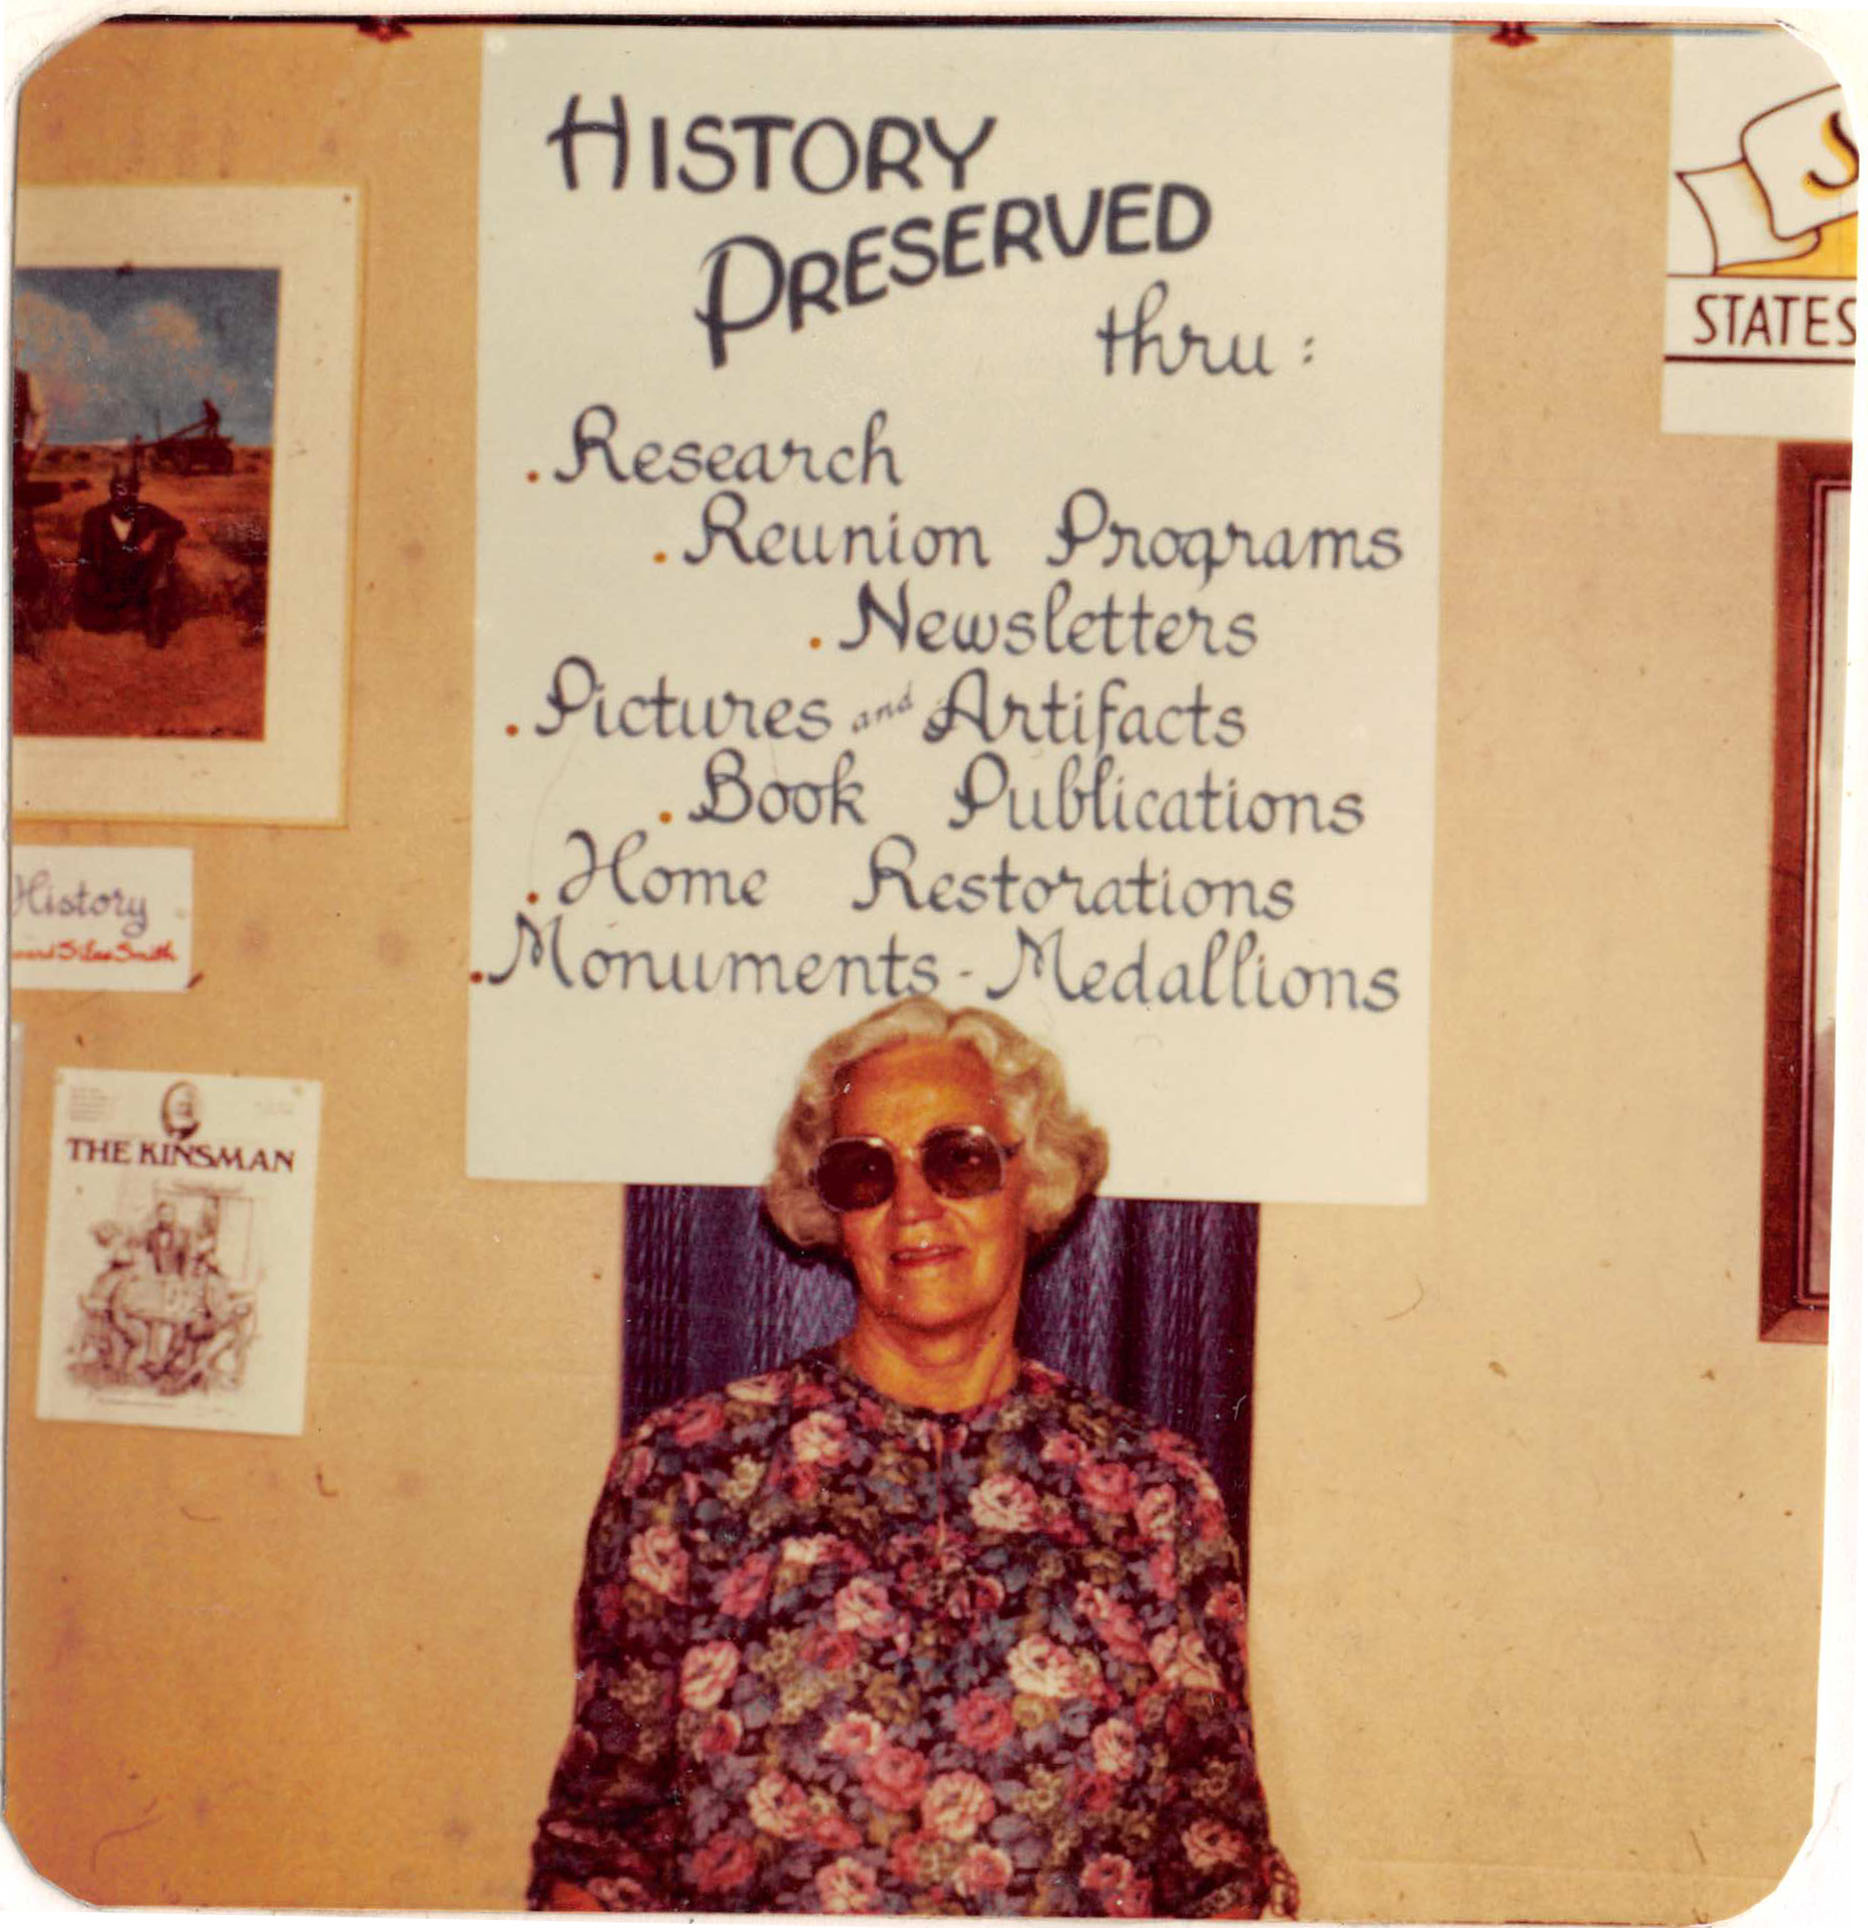 HISTORY
PRESERVED
thru :
. Research
. Reunion Programs
. Newsletters
. Pictures and Artifacts
. Book Publications
. Home Restorations
. Monuments - Medallions
STATES
History
Silas Smith
THE KINSMAN